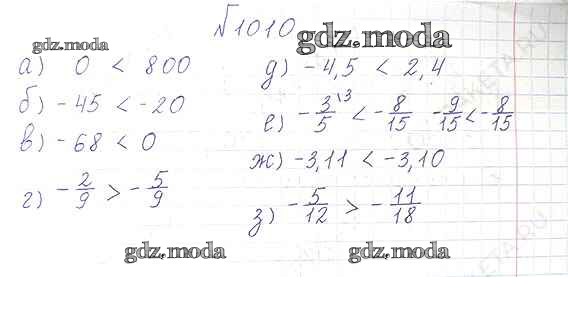 √1010
gdz.moda
gdz.moda
а) 0 < 800
б) -45 < -20
в) -68 < 0
г) -2/9 > -5/9
д) -4,5 < 2,4
е) -3/5 \3 < -8/15 -9/15 < -8/15
ж) -3,11 < -3,10
з) -5/12 > -11/18
gdz.moda
gdz.moda